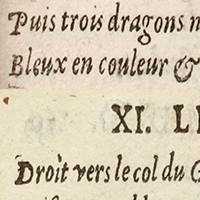 Puis trois dragons
Bleux en couleur &
XI. L
Droit vers le col du